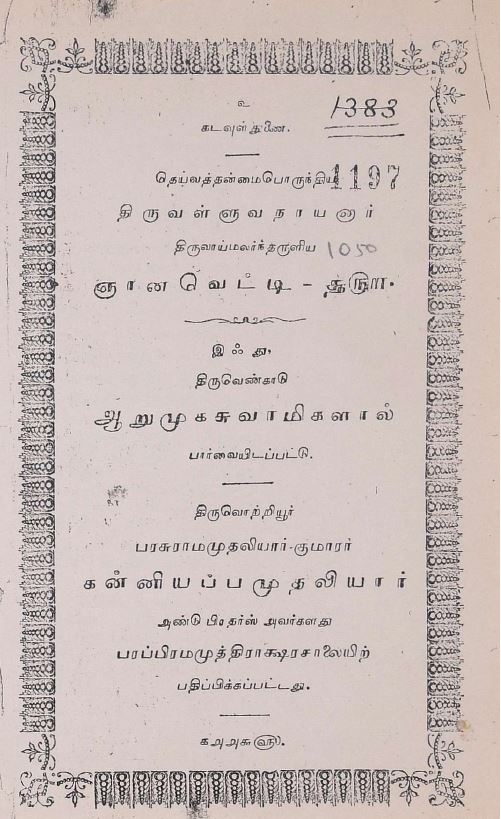 உ
1383
கடவுள் துணை.
தெய்வத்தன்மைபொருந்திய 1197
திருவள்ளுவநாயனார்
திருவாய்மலர்ந்தருளிய 1050
ஞானவெட்டி - ௲௫௱.
இஃது,
திருவெண்காடு
ஆறுமுகசுவாமிகளால்
பார்வையிடப்பட்டு.
திருவொற்றியூர்
பரசுராமமுதலியார்-குமாரர்
கன்னியப்பமுதலியார்
அண்டு பிரதர்ஸ் அவர்களது
பரப்பிரமமுத்திராக்ஷரசாலையிற்
பதிப்பிக்கப்பட்டது.
௧௮௮௬ ௵.